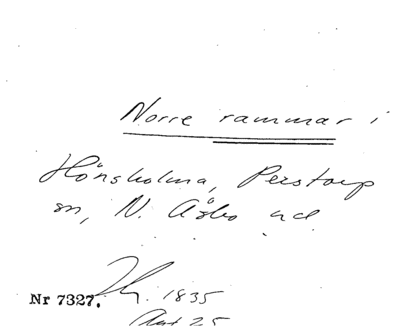 Norre rammar i
Hönsholma, Perstorp
sn, N. Åsbo hd
Nr 7327. 1835